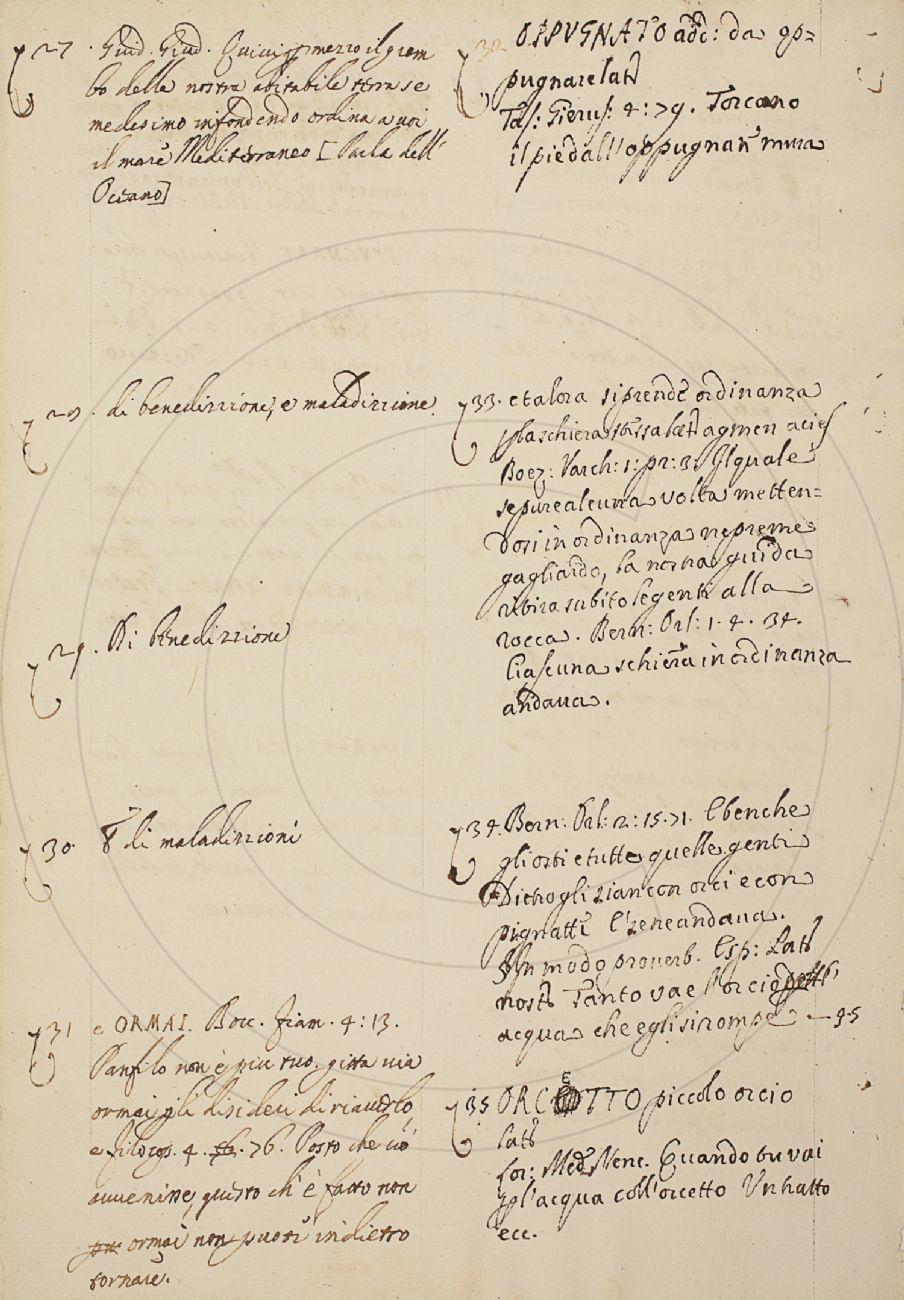 27. Guid. Giud. Quivi p mezzo il grem
bo della nostra abitabile terra se
medesimo infondendo ordina a noi
il mare Mediterraneo [Parla dell'
Oceano]
28. di benedizzione, e maladizzione.
29. Di benedizzione
30. di maladizzioni
31 e ORMAI. Bocc. Fiam. 4: 13.
Panfilo non è piu tuo. gitta via
ormai gli disideri di riaverlo
e Filoc. 4. 76. Posto che ciò
avvenisse, questo ch'è fatto non
ormai non puoti indietro
tornare.
32 OPPUGNATO add: da op=
pugnare lat
Tas: Gierus: 4: 79. Torcano
il piè dall'oppugnate mura
33. e talora si prende ordinanza
p la schiera stessa lat agmen acies
Boez: Varch: 1: pr: 3. Il quale
se pure alcuna volta metten=
dosi in ordinanza ne preme
gagliardo, la nostra guida
ritira subito le genti alla
rocca. Bern: Orl: 1. 4. 34.
Ciascuna schiera in ordinanza
andava.
34. Bern: Orl: 2: 15. 71. E benche
gli osti e tutte quelle genti
Dietrogli sian con orci e con
pignatti
In modo proverb. Esp: Lat
nost Tanto va l'orcio
acqua che egli si rompe - 95
35 ORCETTO piccolo orcio
lat
Lor: Med Nenc. Quando tu vai
p l'acqua coll'orcetto Un hatto
ecc.